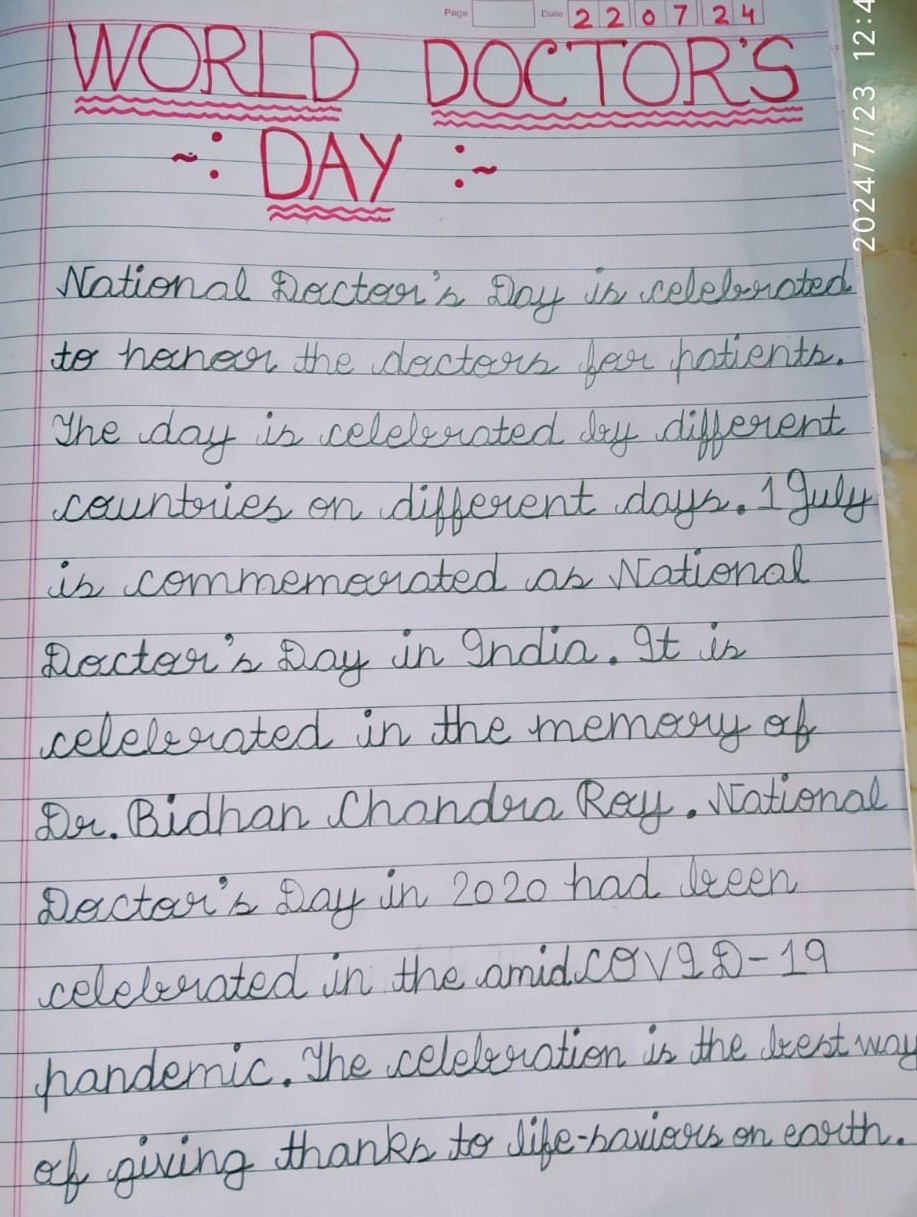 Page Date 220724
WORLD DOCTOR'S
~: DAY :~
National Doctor's Day is celebrated
to honor the doctors for patients.
The day is celebrated by different
countries on different days. 1 July
is commemorated as National
Doctor's Day in India. It is
celebrated in the memory of
Dr. Bidhan Chandra Roy. National
Doctor's Day in 2020 had been
celebrated in the amid COVID-19
pandemic. The celebration is the best way
of giving thanks to life-saviors on earth.
2024/7/23 12:4